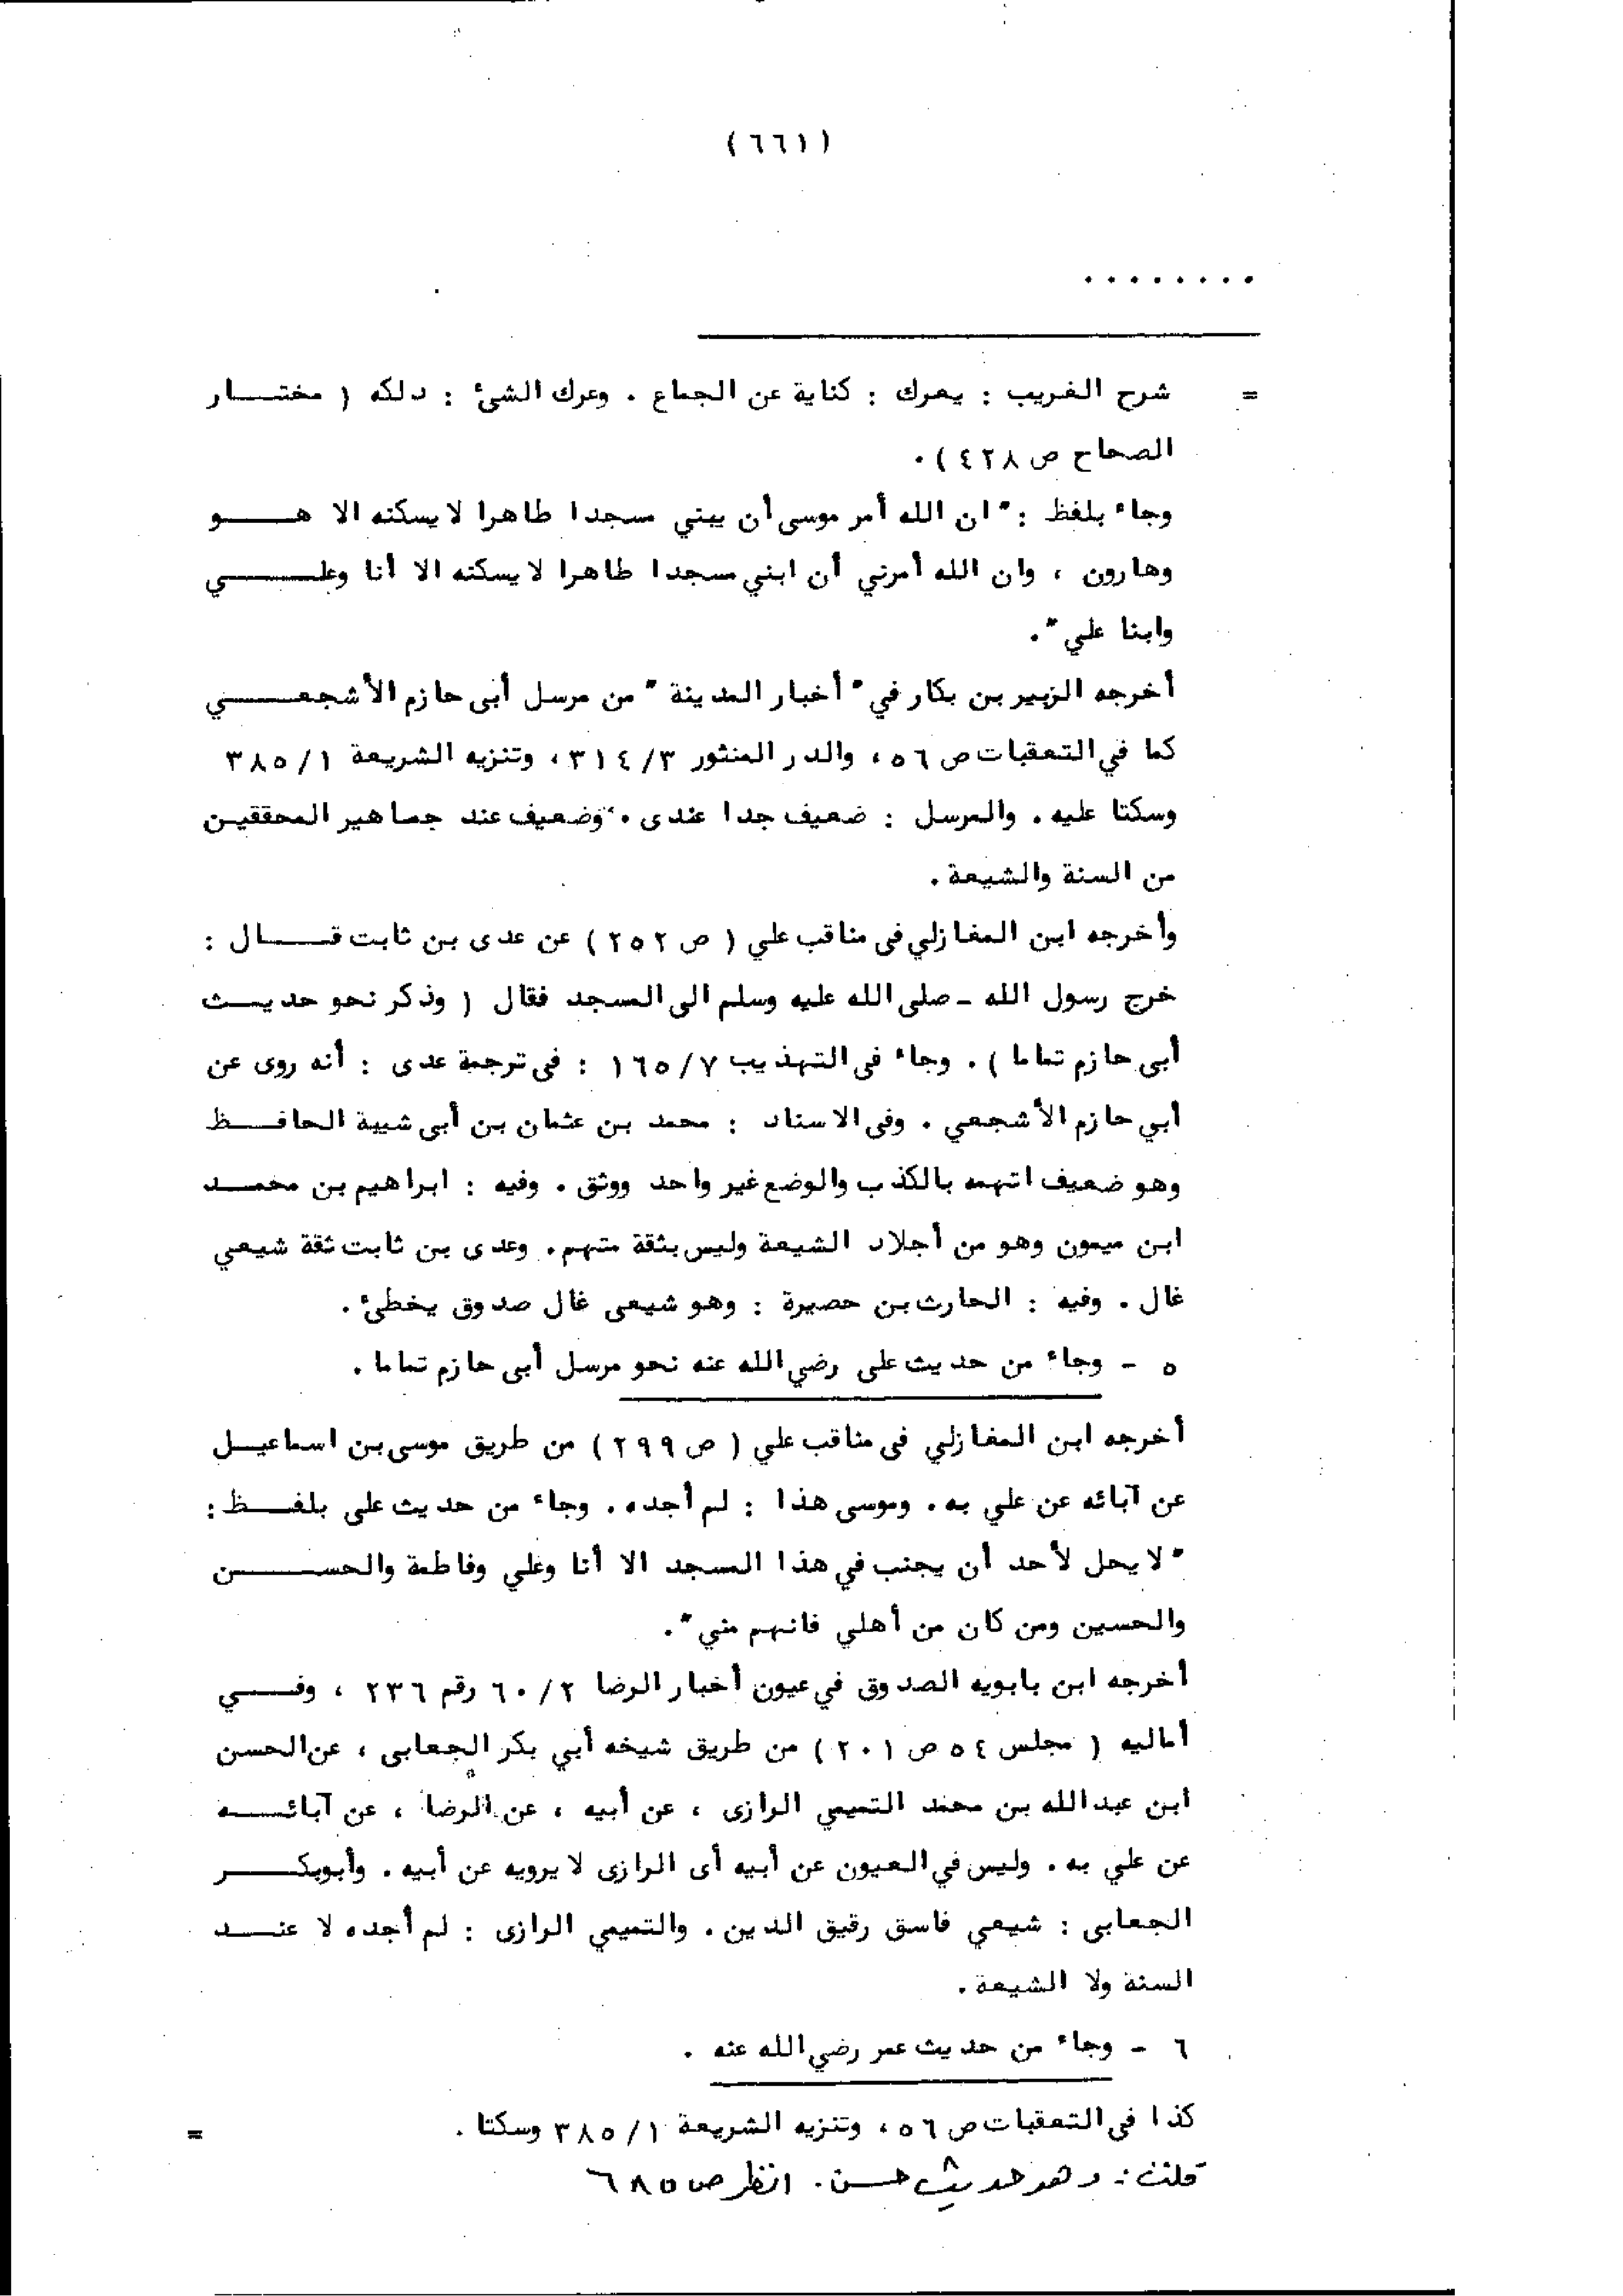 ( ٦٦١ )
. . . . . . . .
= شرح الغريب : يعرك : كناية عن الجماع . وعرك الشئ : دلكه ( مختـــار
الصحاح ص ٤٢٨ ) .
وجاء بلفظ : " ان الله أمر موسى أن يبني مسجدا طاهرا لا يسكنه الا هـــو
وهارون ، وان الله أمرني أن ابني مسجدا طاهرا لا يسكنه الا أنا وعلـــي
وابنا علي " .
أخرجه الزبير بن بكار في " أخبار المدينة " من مرسل أبى حازم الأشجعـــي
كما في التعقبات ص ٥٦ ، والدر المنثور ٣١٤/٣ ، وتنزيه الشريعة ٣٨٥/١
وسكتا عليه . والمرسل : ضعيف جدا عندى . وضعيف عند جماهير المحققيـن
من السنة والشيعة .
وأخرجه ابن المغازلي فى مناقب علي ( ص ٢٥٢ ) عن عدى بن ثابت قـــال :
خرج رسول الله - صلى الله عليه وسلم الى المسجد فقال ( وذكر نحو حديـــث
أبى حازم تماما ) . وجاء فى التهذيب ١٦٥/٧ : فى ترجمة عدى : أنه روى عن
أبي حازم الأشجعي . وفى الاسناد : محمد بن عثمان بن أبى شيبة الحافـــظ
وهو ضعيف اتهمه بالكذب والوضع غير واحد ووثق . وفيه : ابراهيم بن محمـــد
ابن ميمون وهو من أجلاد الشيعة وليس بثقة متهم . وعدى بن ثابت ثقة شيعي
غال . وفيه : الحارث بن حصيرة : وهو شيعى غال صدوق يخطئ .
٥ - وجاء من حديث على رضي الله عنه نحو مرسل أبى حازم تماما .
أخرجه ابن المغازلي فى مناقب علي ( ص ٢٩٩ ) من طريق موسى بن اسماعيـــل
عن آبائه عن علي به . وموسى هذا : لم أجده . وجاء من حديث على بلفـــظ :
" لا يحل لأحد أن يجنب في هذا المسجد الا أنا وعلي وفاطمة والحســـن
والحسين ومن كان من أهلي فانهم مني " .
أخرجه ابن بابويه الصدوق في عيون أخبار الرضا ٦٠/٢ رقم ٢٣٦ ، وفـــي
أماليه ( مجلس ٥٤ ص ٢٠١ ) من طريق شيخه أبي بكر الجعابى ، عن الحسن
ابن عبدالله بن محمد التميمي الرازى ، عن أبيه ، عن الرضا ، عن آبائـــه
عن علي به . وليس في العيون عن أبيه أى الرازى لا يرويه عن أبيه . وأبوبكـــر
الجعابى : شيعي فاسق رقيق الدين . والتميمي الرازى : لم أجده لا عنـــد
السنة ولا الشيعة .
٦ - وجاء من حديث عمر رضي الله عنه .
كذا فى التعقبات ص ٥٦ ، وتنزيه الشريعة ٣٨٥/١ وسكتا . =
قلت : وهو حديث حسن . انظر ص ٦٨٥